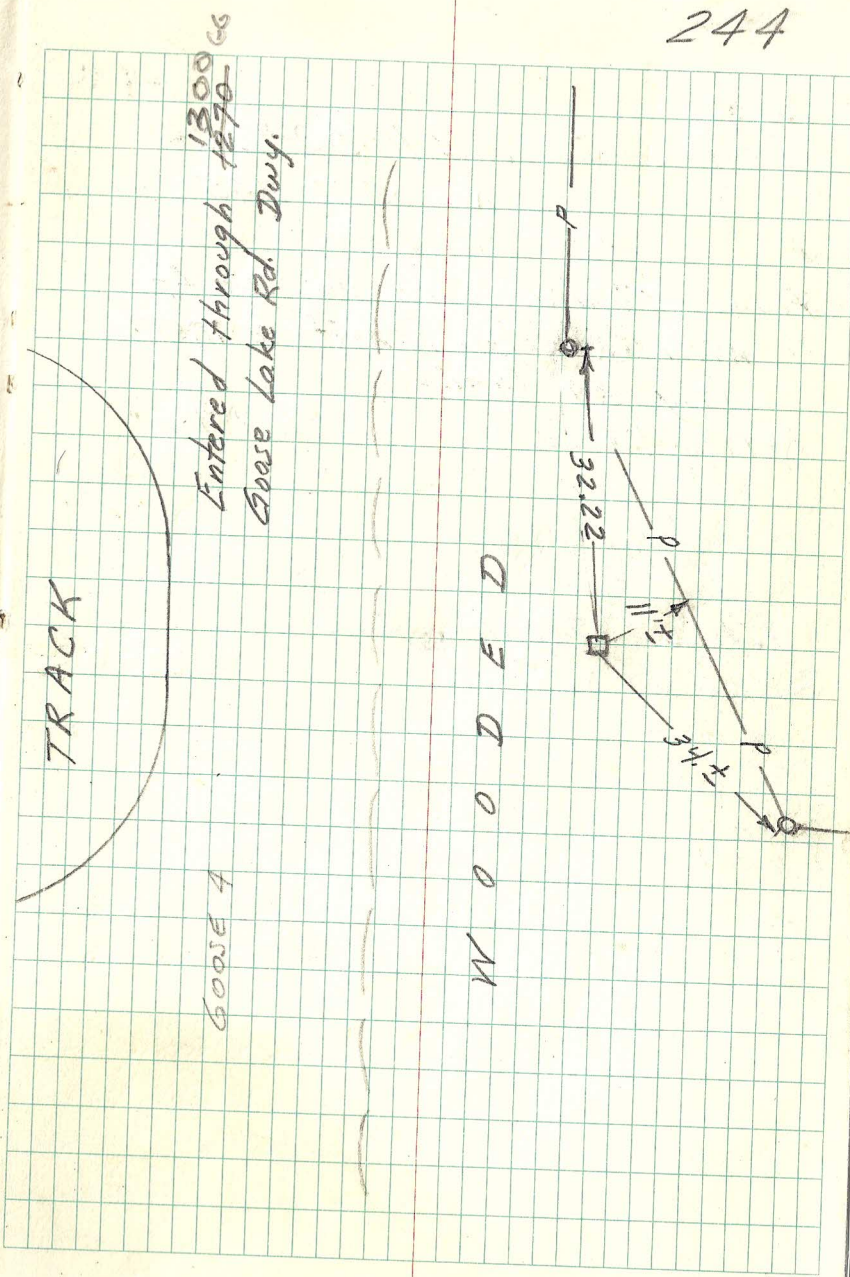 244
TRACK
Entered through 1270 1300 GG
Goose Lake Rd. Dwy.
GOOSE 4
WOODED
P
32.22
P
11'±
P
34'±